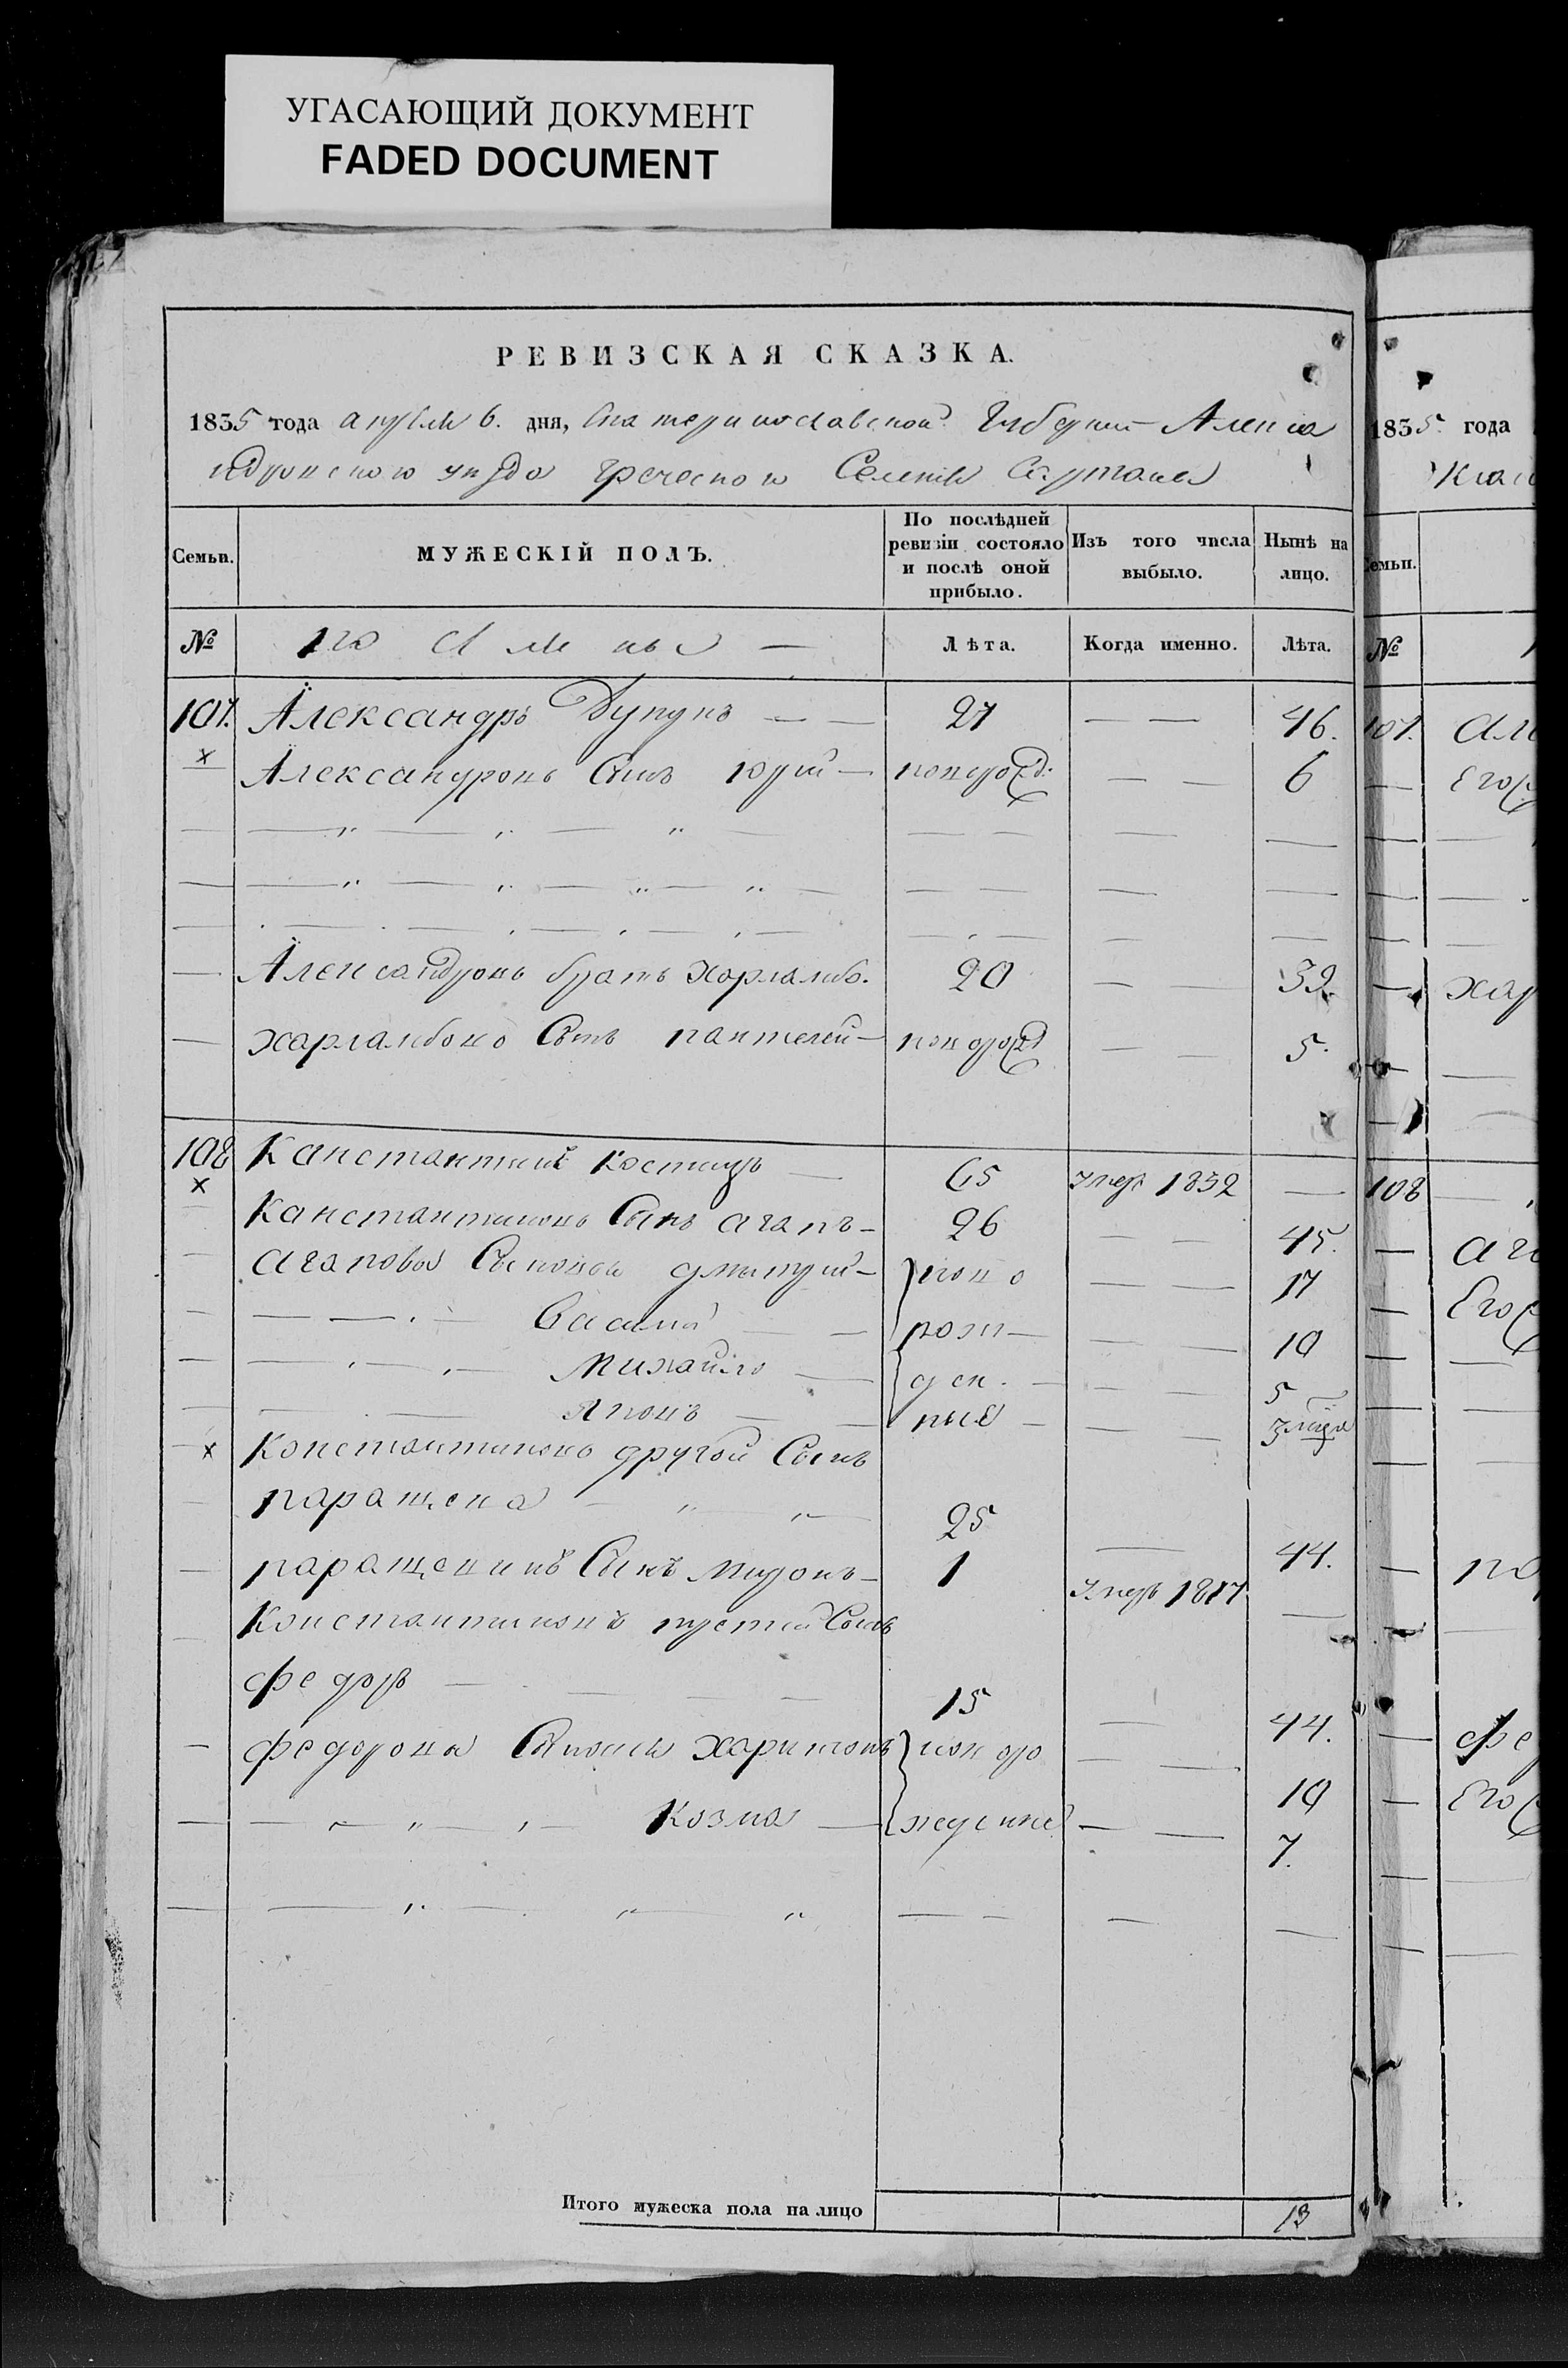 УГАСАЮЩИЙ ДОКУМЕНТ
FADED DOCUMENT
РЕВИЗСКАЯ СКАЗКА.
1835 года апреля 6. дня, Екатеринославской Губернии Алекса
ндровского уезда греческого Селения Сартана
Семьи. МУЖЕСКІЙ ПОЛЪ. По послѣдней ревизіи состояло и послѣ оной прибыло. Изъ того числа выбыло. Нынѣ на лицо.
№ Лѣта. Когда именно. Лѣта.
107. Александръ 27 — — 46.
Александровъ Сынъ Юрий — новорожд. — — 6
Александровъ братъ Харлампо. 20 — — 32
Харламбово Сынъ пантелей — новорожд — — 5.
108 Канстантинъ 65 умер 1832 —
Канстантиновъ Сынъ агапъ — 26 — — 45.
агапова Сыновья дмитрий — ново — — 17
Василий — — рож — — — 10
Михайло — ден. — — — 5
— — ные — — — 3
Констоантиново другой Сынъ
паращева 25 — 44.
паращевинъ Сынъ миронъ — 1 умеръ 1817 —
Константиновъ третей Сынъ
федоръ — 15 — 44.
федорова Сыновья харитонъ новоро — — 10
Козма — жденые — — 7.
Итого мужеска пола на лицо 13
1835. года
Семьи.
№
107.
Его
хар
108
Его
фе
Его